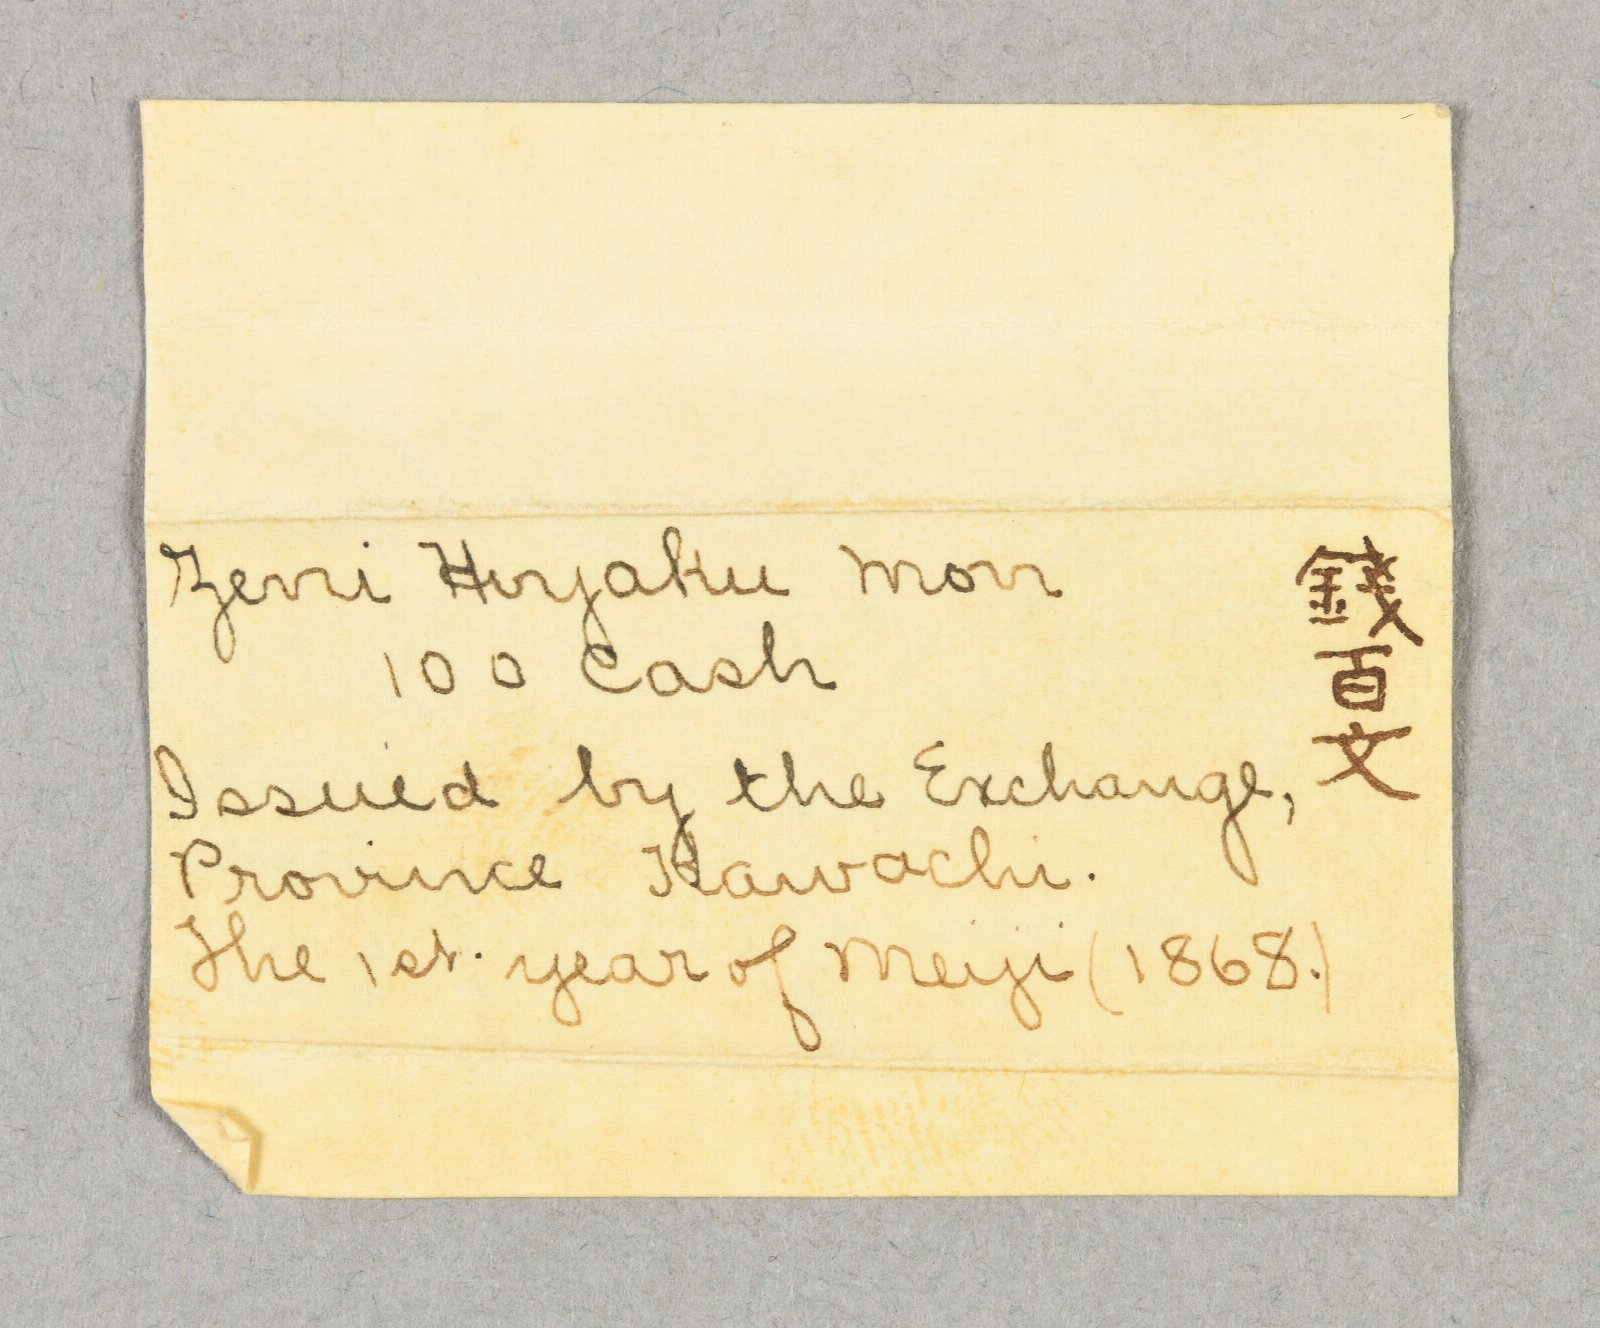 Zeni Hiyaku mon
100 Cash
Issued by the Exchange,
Province Kawachi.
The 1st. year of Meiji (1868.)
錢百文